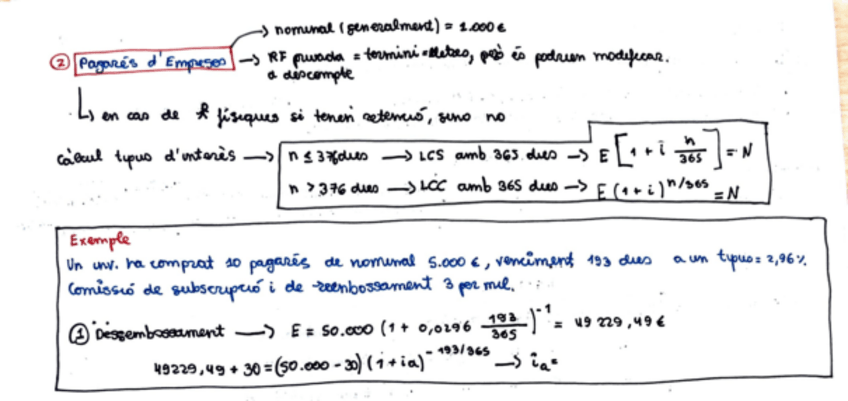 → nominal (generalment) = 1.000 €
② Pagarés d'Empreses → RF privada = termini = lletres, però es podrien modificar.
a descompte
↳ en cas de físiques si tenen retenció, sino no
càlcul tipus d'interès → n ≤ 376 dies → LCS amb 365 dies → E [1 + i n/365] = N
n > 376 dies → LCC amb 365 dies → E (1 + i)^n/365 = N
Exemple
Un inv. ha comprat 10 pagarés de nominal 5.000 €, venciment 193 dies a un tipus = 2,96%.
Comissió de subscripció i de reenbossament 3 per mil.
① Dessembossament → E = 50.000 (1 + 0,0296 193/365)^-1 = 49 229,49 €
49229,49 + 30 = (50.000 - 30) (1 + ia)^-193/365 → ia =